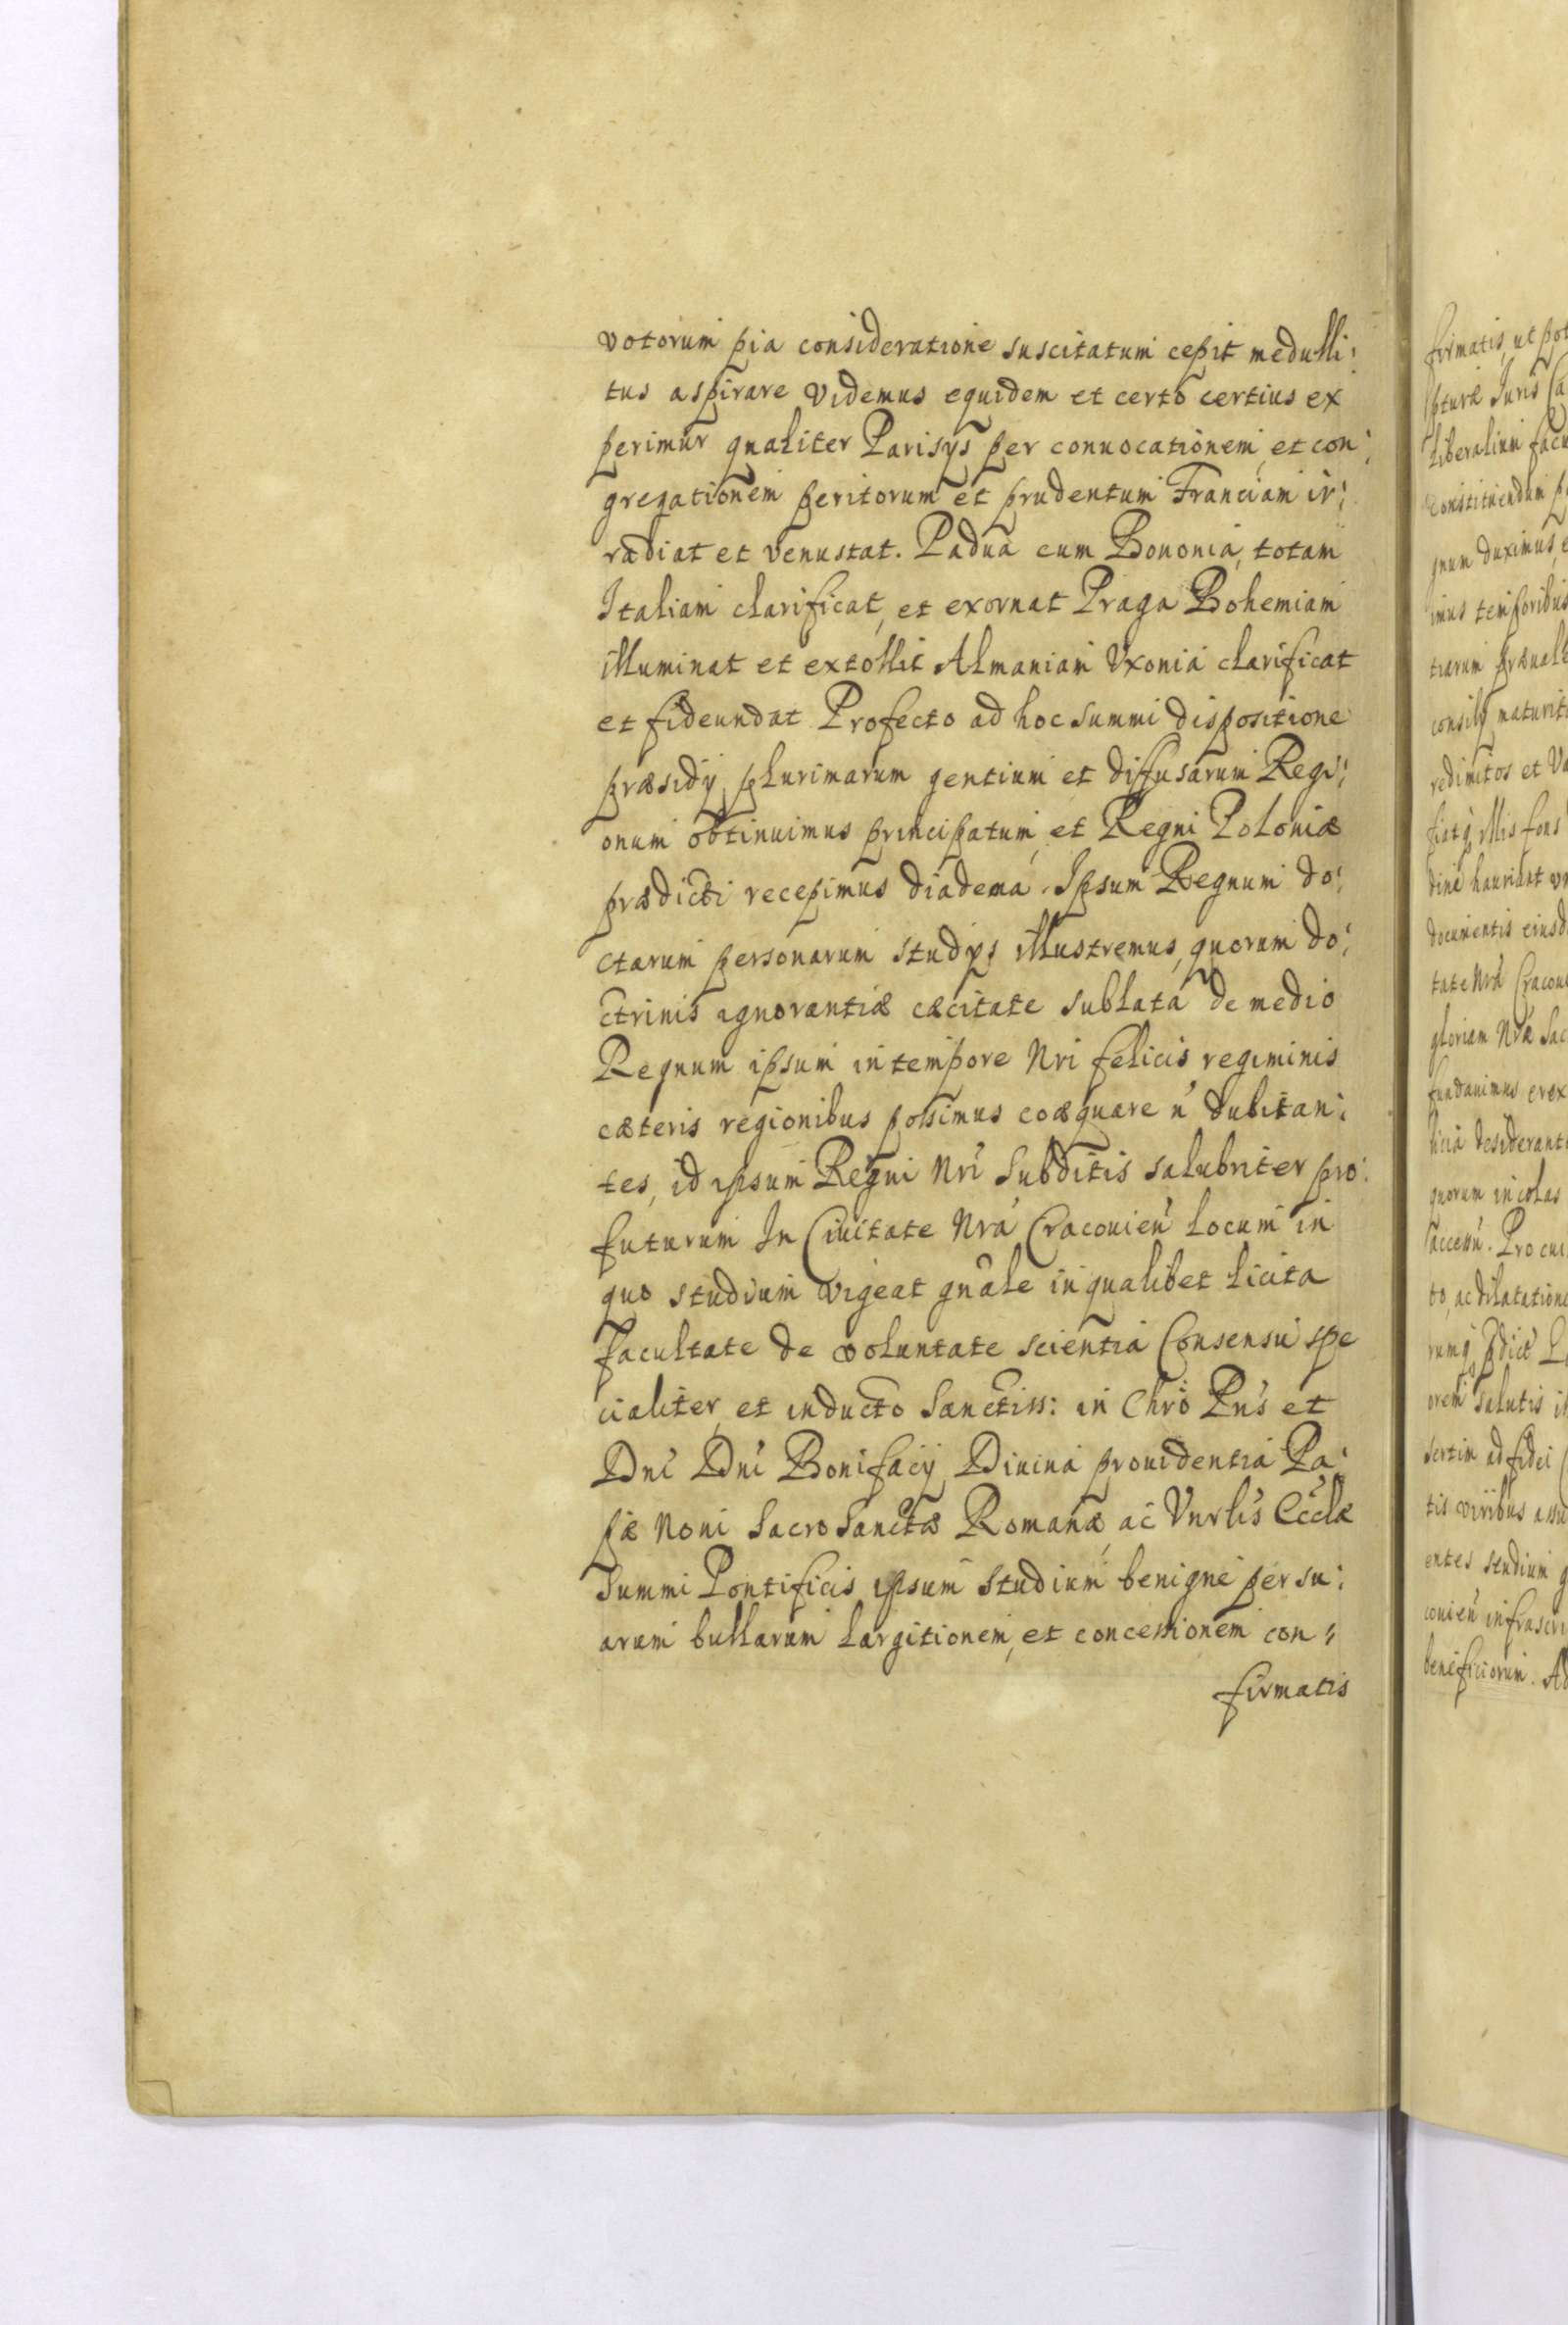 votorum pia consideratione suscitatum cepit medulli:
tus aspirare Videmus equidem et certo certius ex
perimur qualiter Parisys per conuocationem, et con:
gregationem peritorum et prudentum Franciam ir:
radiat et venustat. Padua cum Bononia, totam
Italiam clarificat, et exornat Praga Bohemiam
illuminat et extollit Almaniam Vxonia clarificat
et fideundat Profecto ad hoc summi dispositione
præsidy, plurimarum gentium et diffusarum Regi:
onum obtinuimus principatum, et Regni Poloniæ
prædicti recepimus diadema. Ipsum Regnum do:
ctarum personarum studys illustremus, quorum do:
ctrinis ignorantiæ cæcitate sublata de medio
Regnum ipsum in tempore Nri felicis regiminis
cæteris regionibus possimus coæquare ń dubitan:
tes, id ipsum Regni Nri Subditis salubriter pro:
futurum In Ciuitate Nrá Cracouień locum in
quo studium vigeat gnále in qualibet licita
facultate de voluntate scientia Consensu spe
cialiter, et inducto Sanctiss: in Chrō Pn̄s et
Dnī Dnī Bonifacij Diuina prouidentia Pa:
pæ Noni Sacro Sanctæ Romanæ, ac Vnrlis Ecclæ
Summi Pontificis ipsum studium benigne per su:
arum bullarum largitionem, et concessionem con:
firmatis
firmatis, ut pot
pturæ Juris Ca
liberalium facu
constituendum p
gnum duximus, e
imus temporibus
tiarum præuale
consilij maturita
redimitos et Va
fiatq illis fons
dine hauriant vn
documentis eiusd
tate Nrá Cracoui
gloriam Nræ Sac
fundauimus erex
licia desiderant
quorum incolas
accessu. Pro cui
to, ac dilatatione
orem salutis
sertim ad fidei
tis viribus assu
entes studium g
couień infrascri
beneficiorum. Ad